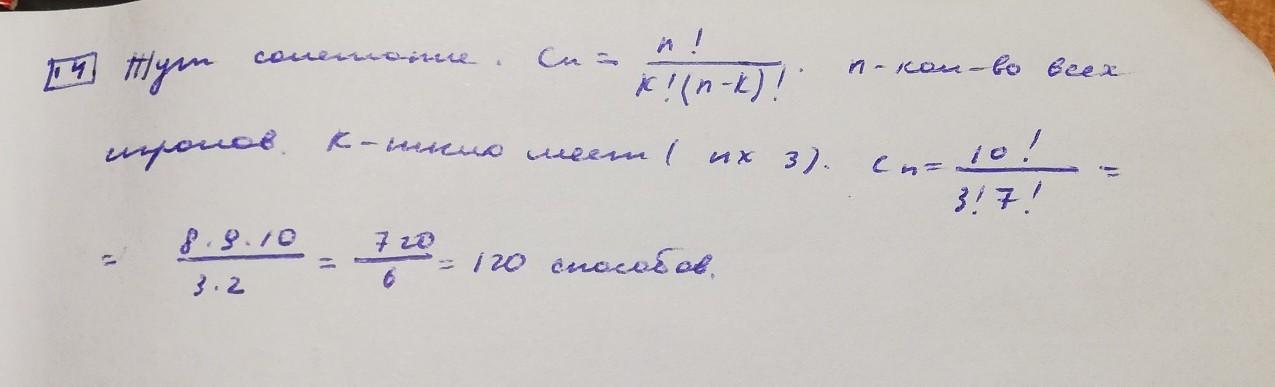 14 Тут сочетание. Cn = n! / k!(n-k)! . n-кол-во всех
игроков. K-число мест ( их 3). Cn = 10! / 3! 7! =
= 8·9·10 / 3·2 = 720 / 6 = 120 способов.